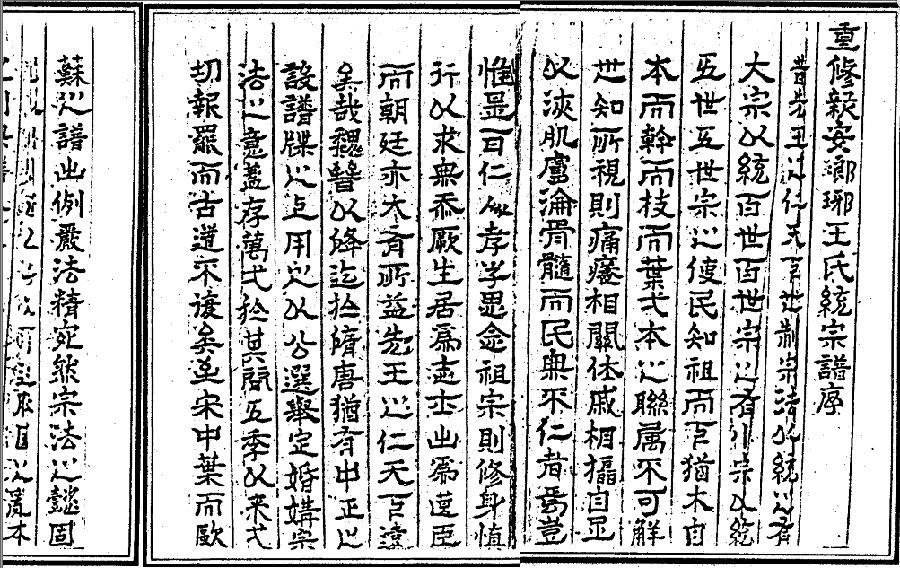 重修親安瑯琊王氏統宗譜序
昔先王之仁天下也制宗法以統之有
大宗以統百世百世宗之有小宗以統
五世五世宗之使民知祖而下猶木自
本而幹而枝而葉弍本之聯属不可解
也知所視則痛癢相關休戚相攝自足
以浹肌膚淪骨髓而民興不仁者焉豈
惟是百仁人孝子思念祖宗則修身慎
行以求無忝厥生居為志士出為藎臣
而朝廷亦大有所益先王之仁天下遠
矣哉魏晉以降迄於隋唐猶有中正之
設譜牒之上用之以公選舉定婚媾宗
法之意蓋存萬弍於其間五季以來弍
切報罷而古道不復矣至宋中葉而歐
蘇之譜出例嚴法精宛然宗法之懿固